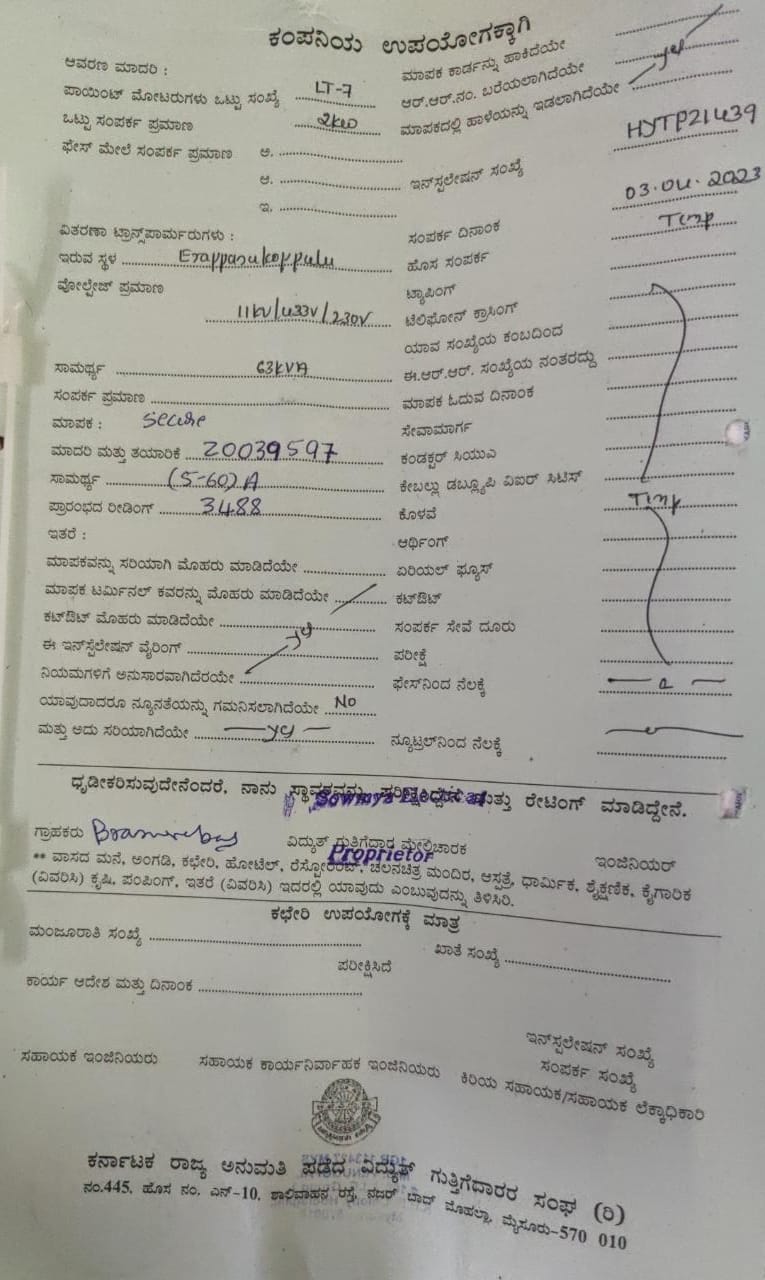 ಕಂಪನಿಯ ಉಪಯೋಗಕ್ಕಾಗಿ
ಆವರಣ ಮಾದರಿ :
ಮಾಪಕ ಕಾರ್ಡನ್ನು ಹಾಕಿದೆಯೇ
ಪಾಯಿಂಟ್ ಮೋಟರುಗಳು ಒಟ್ಟು ಸಂಖ್ಯೆ LT-7
ಆರ್.ಆರ್.ನಂ. ಬರೆಯಲಾಗಿದೆಯೇ yes
ಒಟ್ಟು ಸಂಪರ್ಕ ಪ್ರಮಾಣ 2KW
ಮಾಪಕದಲ್ಲಿ ಹಾಳೆಯನ್ನು ಇಡಲಾಗಿದೆಯೇ
ಫೇಸ್ ಮೇಲೆ ಸಂಪರ್ಕ ಪ್ರಮಾಣ ಅ.
HYTP21439
ಆ.
ಇನ್‌ಸ್ಪಲೇಷನ್ ಸಂಖ್ಯೆ
ಇ.
03.04.2023
ವಿತರಣಾ ಟ್ರಾನ್ಸ್‌ಪಾರ್ಮರುಗಳು :
ಸಂಪರ್ಕ ದಿನಾಂಕ Temp
ಇರುವ ಸ್ಥಳ Erappanakoppalu
ಹೊಸ ಸಂಪರ್ಕ
ವೋಲ್ಟೇಜ್ ಪ್ರಮಾಣ
ಟ್ಯಾಪಿಂಗ್
11KV/433V/230V
ಟೆಲಿಫೋನ್ ಕ್ರಾಸಿಂಗ್
ಯಾವ ಸಂಖ್ಯೆಯ ಕಂಬದಿಂದ
ಸಾಮರ್ಥ್ಯ 63KVA
ಈ.ಆರ್.ಆರ್. ಸಂಖ್ಯೆಯ ನಂತರದ್ದು
ಸಂಪರ್ಕ ಪ್ರಮಾಣ
ಮಾಪಕ ಓದುವ ದಿನಾಂಕ
ಮಾಪಕ : Secure
ಸೇವಾಮಾರ್ಗ
ಮಾದರಿ ಮತ್ತು ತಯಾರಿಕೆ 20039597
ಕಂಡಕ್ಟರ್ ಸಿಯುಎ
ಸಾಮರ್ಥ್ಯ (5-60)A
ಕೇಬಲ್ಲು ಡಬ್ಲ್ಯೂಪಿ ವಿಐರ್ ಸಿಟಿಸ್
ಪ್ರಾರಂಭದ ರೀಡಿಂಗ್ 3488
ಕೊಳವೆ Temp
ಇತರೆ :
ಆರ್ಥಿಂಗ್
ಮಾಪಕವನ್ನು ಸರಿಯಾಗಿ ಮೊಹರು ಮಾಡಿದೆಯೇ
ಏರಿಯಲ್ ಫ್ಯೂಸ್
ಮಾಪಕ ಟರ್ಮಿನಲ್ ಕವರನ್ನು ಮೊಹರು ಮಾಡಿದೆಯೇ
ಕಟ್‌ಔಟ್
ಕಟ್‌ಔಟ್ ಮೊಹರು ಮಾಡಿದೆಯೇ
ಸಂಪರ್ಕ ಸೇವೆ ದೂರು
ಈ ಇನ್‌ಸ್ಪೆಲೇಷನ್ ವೈರಿಂಗ್ yes
ಪರೀಕ್ಷೆ
ನಿಯಮಗಳಿಗೆ ಅನುಸಾರವಾಗಿದೆರಯೇ
ಫೇಸ್‌ನಿಂದ ನೆಲಕ್ಕೆ
ಯಾವುದಾದರೂ ನ್ಯೂನತೆಯನ್ನು ಗಮನಿಸಲಾಗಿದೆಯೇ No
ಮತ್ತು ಅದು ಸರಿಯಾಗಿದೆಯೇ yes
ನ್ಯೂಟ್ರಲ್‌ನಿಂದ ನೆಲಕ್ಕೆ
ಧೃಡೀಕರಿಸುವುದೇನೆಂದರೆ, ನಾನು ಸ್ಥಾವರವನ್ನು ಪರೀಕ್ಷಿಸಿದ್ದೇನೆ ಮತ್ತು ರೇಟಿಂಗ್ ಮಾಡಿದ್ದೇನೆ.
Sowmya Electrical
ಗ್ರಾಹಕರು
ವಿದ್ಯುತ್ ಗುತ್ತಿಗೆದಾರ ಮೇಲ್ವಿಚಾರಕ
ಇಂಜಿನಿಯರ್
Proprietor
** ವಾಸದ ಮನೆ, ಅಂಗಡಿ, ಕಛೇರಿ, ಹೋಟೆಲ್, ರೆಸ್ಟೋರೆಂಟ್, ಚಲನಚಿತ್ರ ಮಂದಿರ, ಆಸ್ಪತ್ರೆ, ಧಾರ್ಮಿಕ, ಶೈಕ್ಷಣಿಕ, ಕೈಗಾರಿಕ
(ವಿವರಿಸಿ) ಕೃಷಿ, ಪಂಪಿಂಗ್, ಇತರೆ (ವಿವರಿಸಿ) ಇದರಲ್ಲಿ ಯಾವುದು ಎಂಬುವುದನ್ನು ತಿಳಿಸಿರಿ.
ಕಛೇರಿ ಉಪಯೋಗಕ್ಕೆ ಮಾತ್ರ
ಮಂಜೂರಾತಿ ಸಂಖ್ಯೆ
ಖಾತೆ ಸಂಖ್ಯೆ
ಪರೀಕ್ಷಿಸಿದೆ
ಕಾರ್ಯ ಆದೇಶ ಮತ್ತು ದಿನಾಂಕ
ಇನ್‌ಸ್ಪಲೇಷನ್ ಸಂಖ್ಯೆ
ಸಂಪರ್ಕ ಸಂಖ್ಯೆ
ಸಹಾಯಕ ಇಂಜಿನಿಯರು ಸಹಾಯಕ ಕಾರ್ಯನಿರ್ವಾಹಕ ಇಂಜಿನಿಯರು ಕಿರಿಯ ಸಹಾಯಕ/ಸಹಾಯಕ ಲೆಕ್ಕಾಧಿಕಾರಿ
ಕರ್ನಾಟಕ ರಾಜ್ಯ ಅನುಮತಿ ಪಡೆದ ವಿದ್ಯುತ್ ಗುತ್ತಿಗೆದಾರರ ಸಂಘ (ರಿ)
ನಂ.445, ಹೊಸ ನಂ. ಎನ್-10, ಶಾಲಿವಾಹನ ರಸ್ತೆ, ನಜರ್ ಬಾದ್ ಮೊಹಲ್ಲಾ, ಮೈಸೂರು-570 010